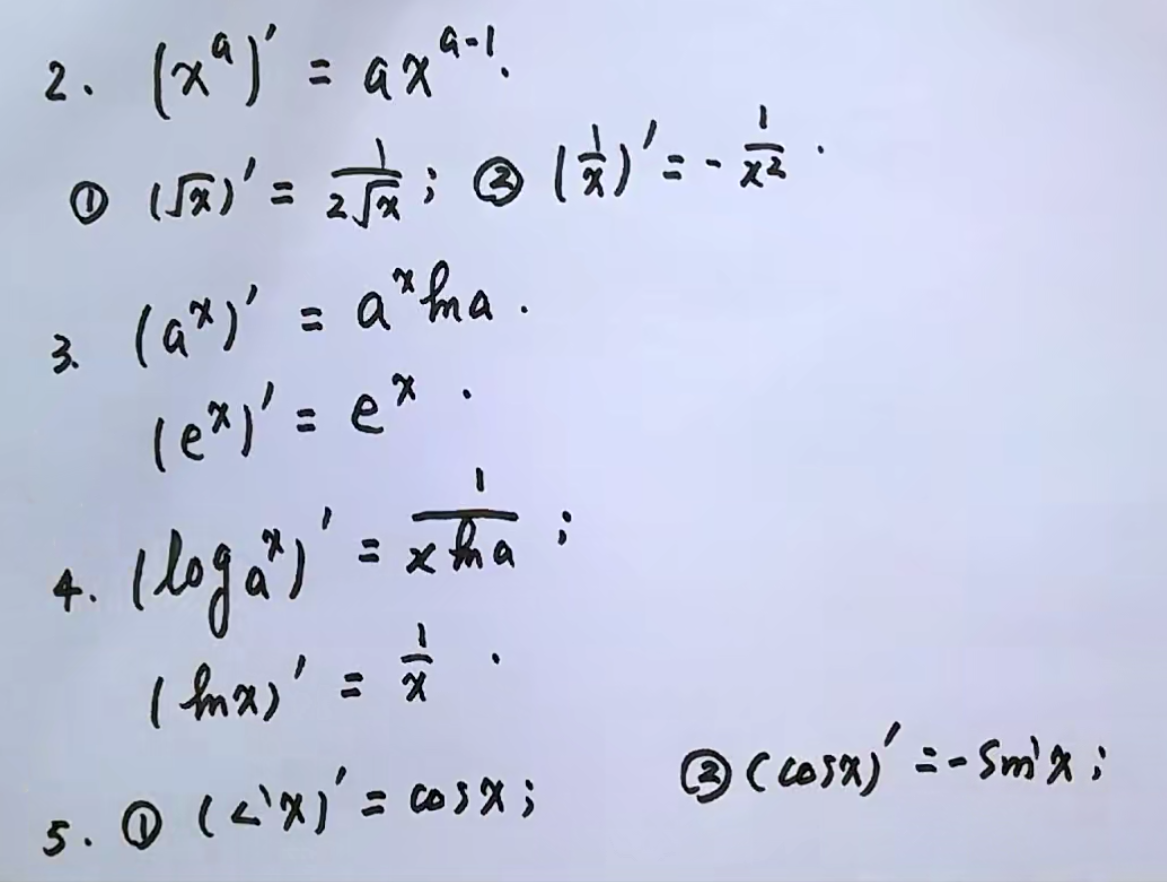 2. (x^a)' = ax^{a-1}.
① (√x)' = 1/(2√x); ② (1/x)' = -1/x².
3. (a^x)' = a^x ln a.
(e^x)' = e^x.
4. (log_a^x)' = 1/(x ln a);
(ln x)' = 1/x.
5. ① ( x)' = cos x; ② (cos x)' = -sin x;